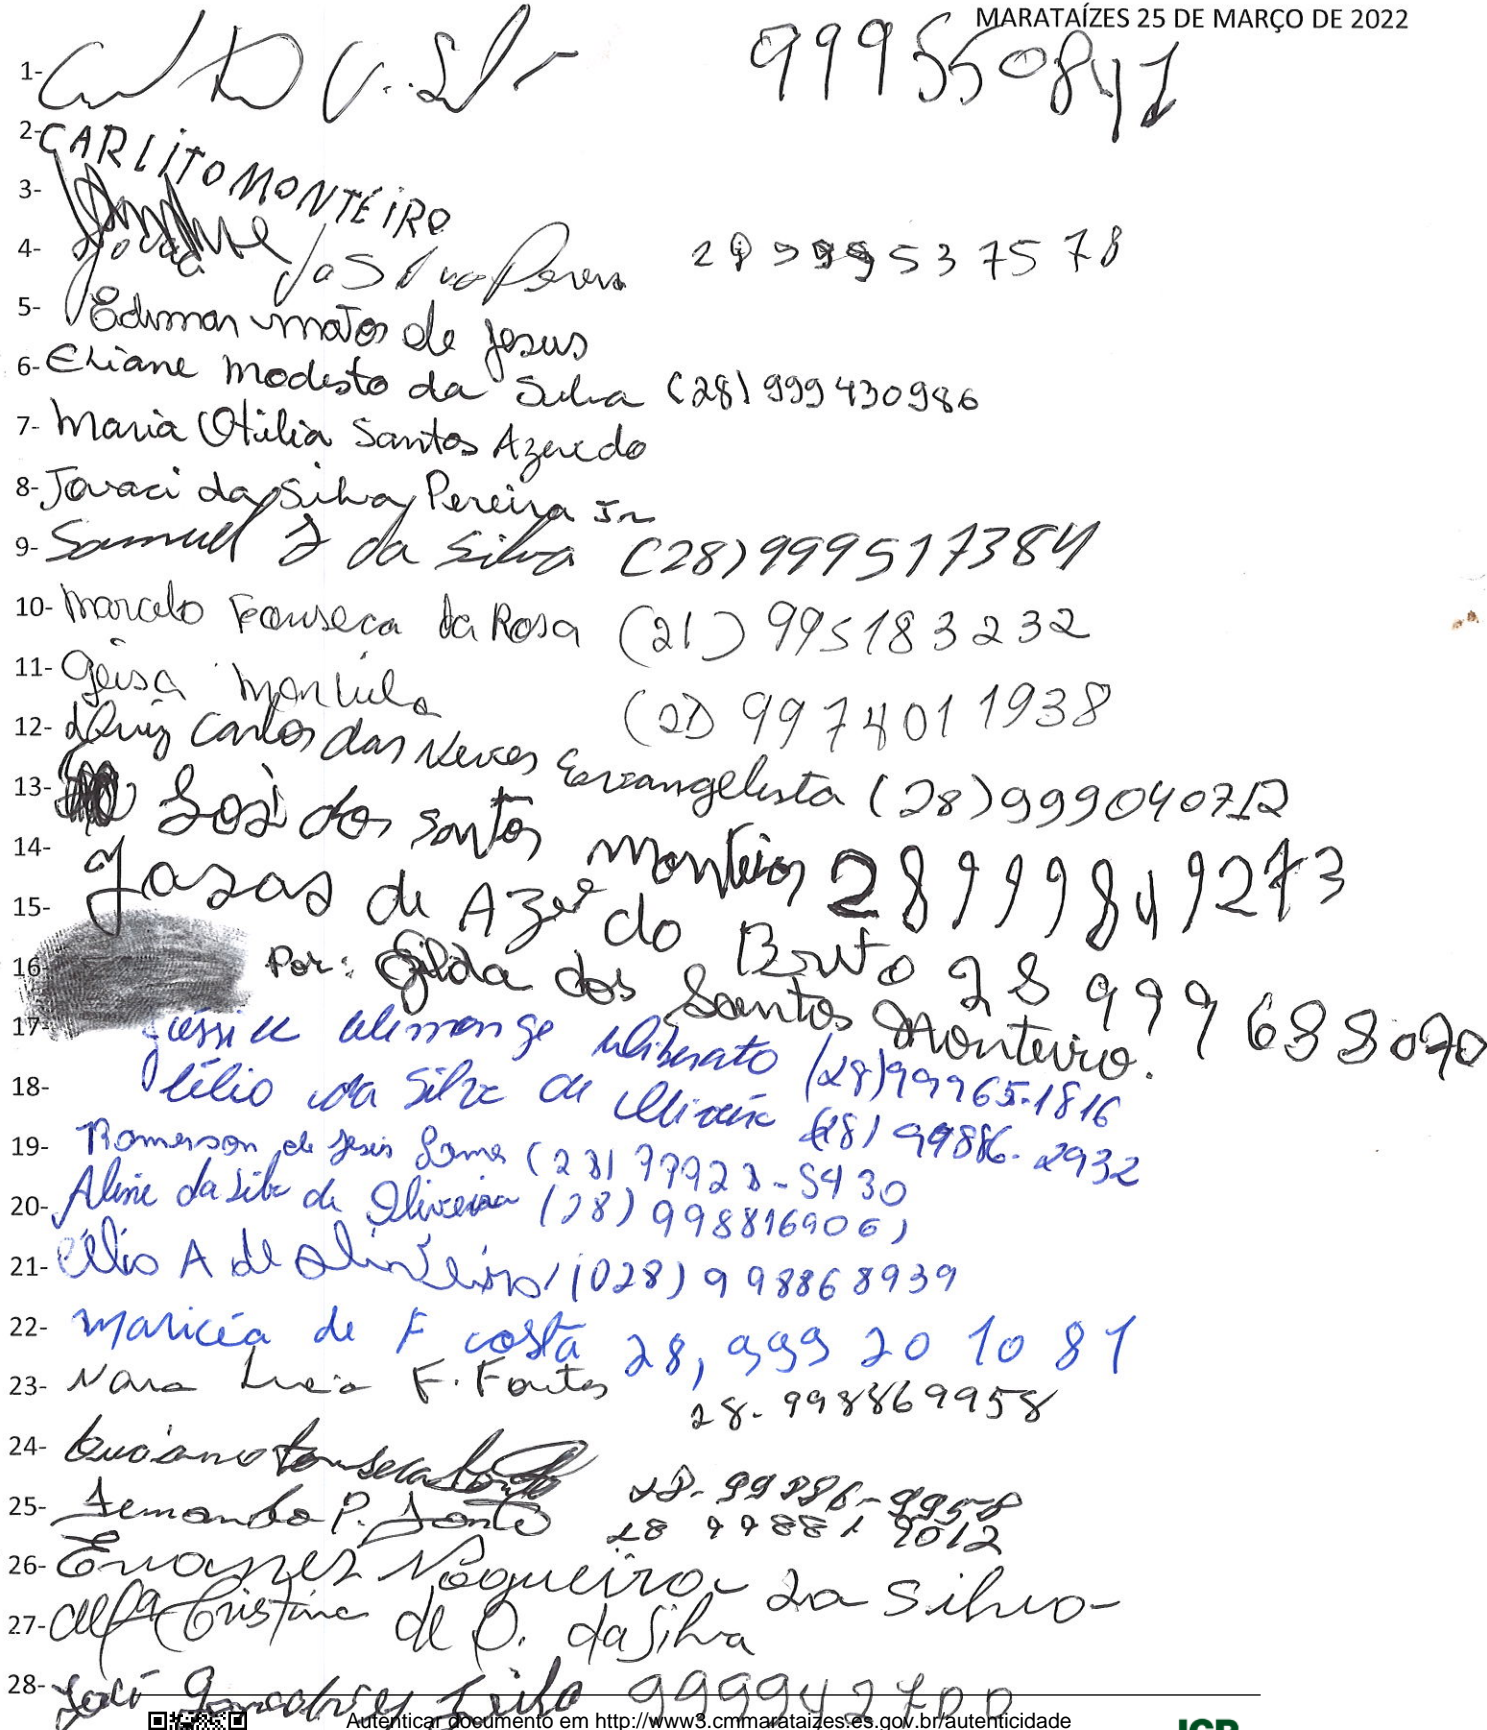 MARATAÍZES 25 DE MARÇO DE 2022
1- 9995550841
2- CARLITO MONTEIRO
3-
4- da Silva 53 75 78
5- Edimar Matos de Jesus
6- Eliane Modesto da Silva (28) 999430986
7- Maria Otilia Santos Azeredo
8- Jovaci da Silva Pereira Jr
9- Samuel J da Silva (28) 999517384
10- Marcelo Fonseca da Rosa (21) 995183232
11- Geisa (21) 997401 1938
12- Luiz Carlos das Neves Evangelista (28) 999040712
13- dos Santos Monteiro 28999849273
14- de Azeredo Brito 28 999 688070
15-
16- Por: Gilda dos Santos Monteiro.
17- (28) 99965-1816
18- Célio da Silva de Oliveira (28) 99886-2932
19- de Jesus (28) 99923-5430
20- Aline da Silva de Oliveira (28) 998816906
21- Célio A de Oliveira (028) 998868939
22- Maricéa de F costa 28, 999 20 10 81
23- Nara Lucia F. Fontes 28-998869958
24- Luciano Fonseca 28-99886-9958
25- Fernando P. 28 99881 9012
26- Nogueira da Silva
27- Cristina de O. da Silva
28- 999942700
Autenticar documento em http://www3.cmmarataizes.es.gov.br/autenticidade
ICP